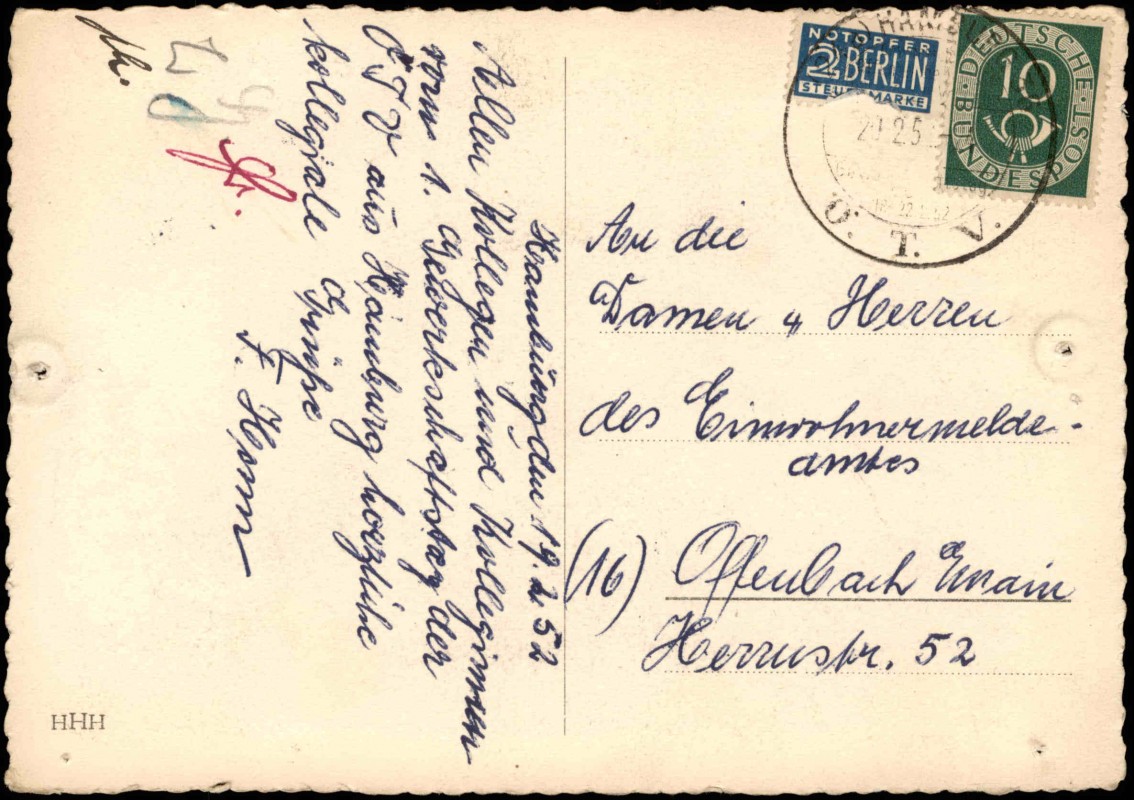 Hamburg den 19.2.52
Allen Kollegen und Kolleginnen
vom 1. Gewerkschaftstag der
ÖTV aus Hamburg herzliche
kollegiale Grüße
F. Horn
NOTOPFER
2 BERLIN
STEUERMARKE
DEUTSCHE BUNDESPOST
10
HAMBURG
Ö. T. V.
An die
Damen u Herren
des Einwohnermelde-
amtes
(16) Offenbach Main
Herrnstr. 52
HHH